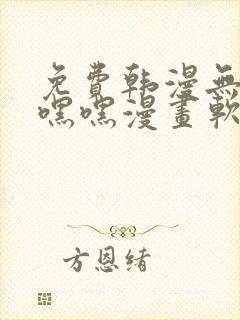 免費韩漫無
嘿嘿漫畫軟
方恩緒